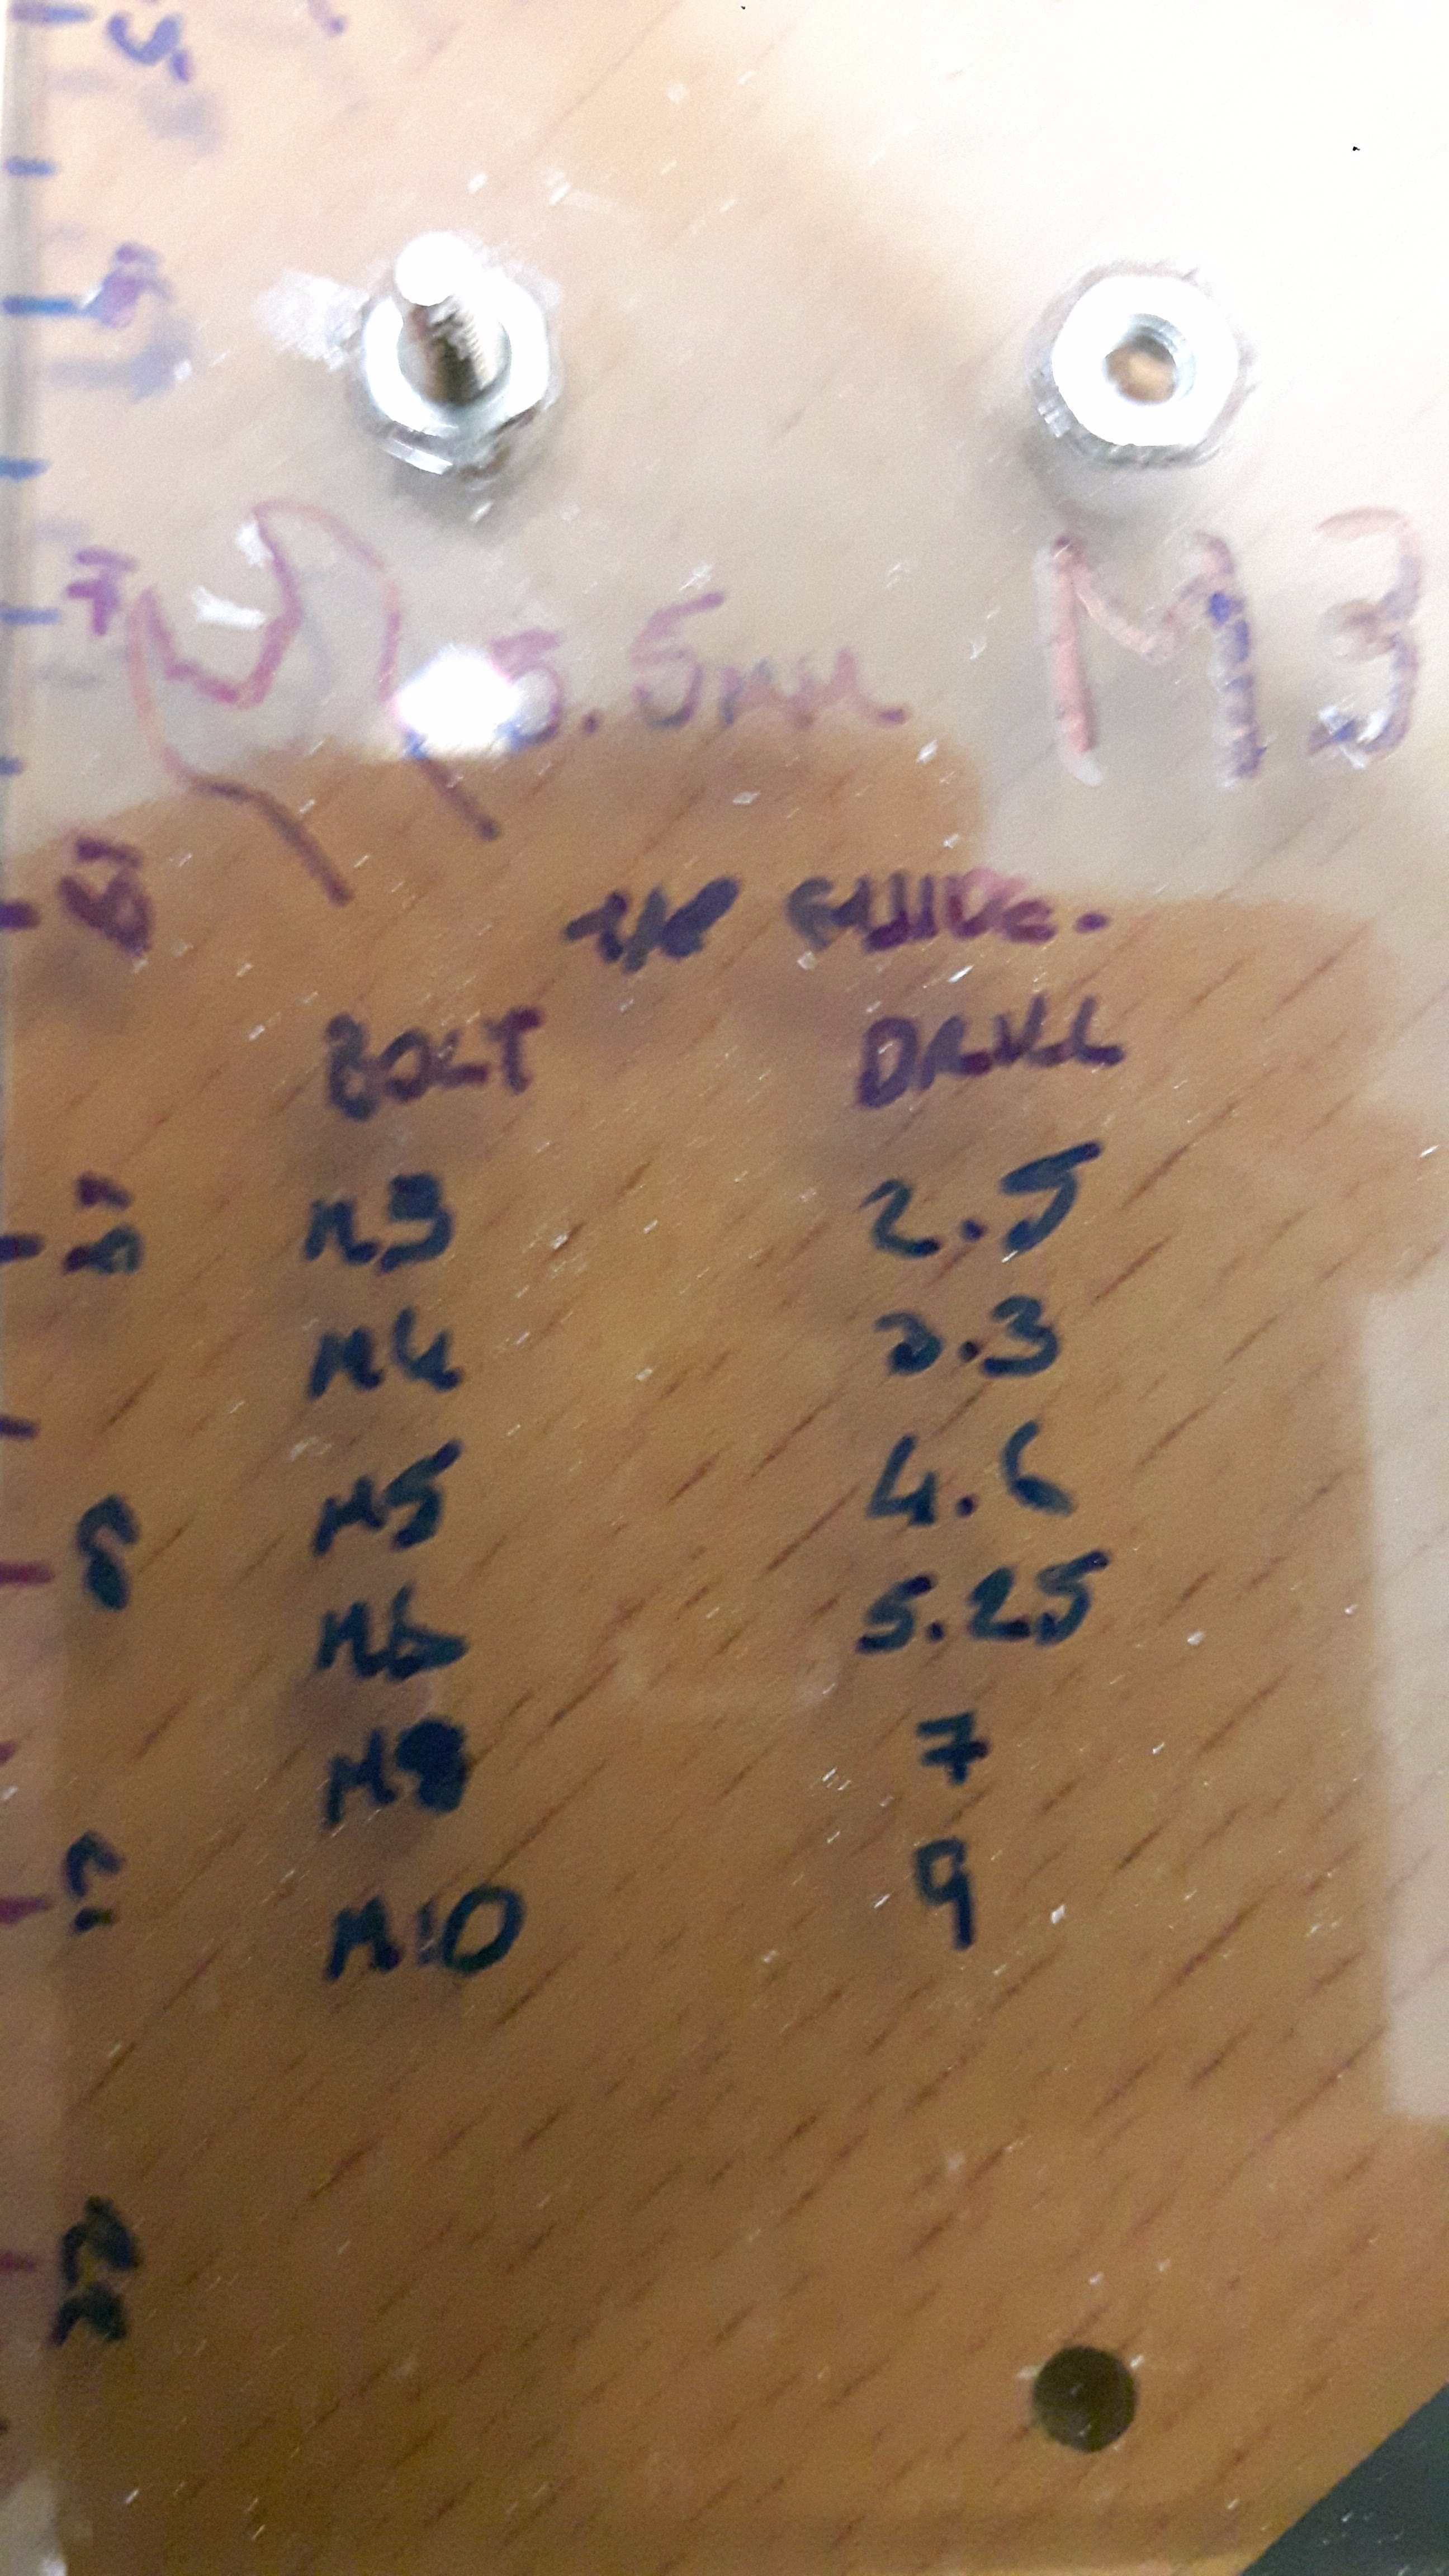 5.5mm
M3
TAP GUIDE.
BOLT DRILL
M3 2.5
M4 3.3
M5 4.6
M6 5.25
M8 7
M10 9